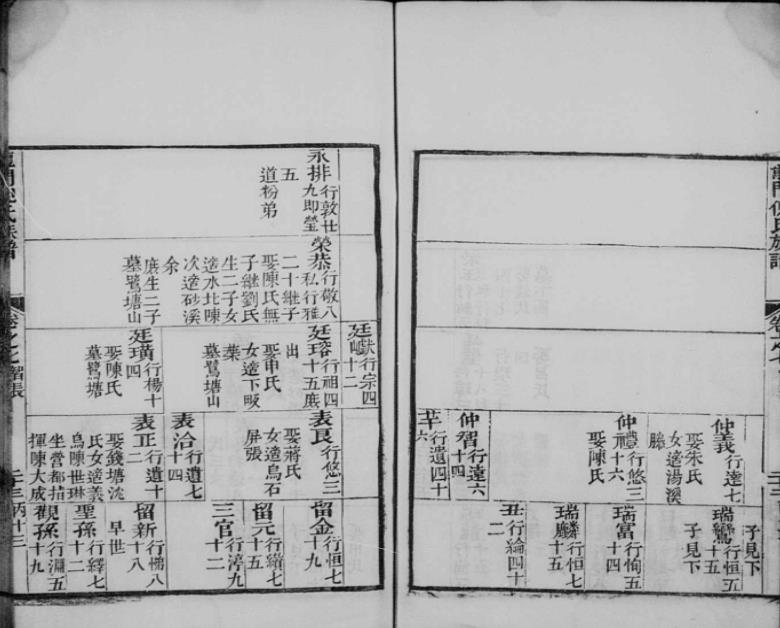 子見下
仲義行達七
娶朱氏
女適湯溪
瑞鸞行恒五
十五
子見下
仲禮行悠三
十六
娶陳氏
瑞富行恂五
十四
瑞麟行恒七
十五
仲智行遠六
十四
丑行綸四十
二
行遺四十
六
廷巘行宗四
十二
永排行敦廿
九即瑩
五
道粉弟
榮恭行敬八
私行雅
二十繼子
娶陳氏無
子繼劉氏
生二子女
適水北陳
次適砂溪
余
庶生二子
墓鷺塘山
廷瑢行祖四
十五庶
出
娶申氏
女適下畈
葉
墓鷺塘山
廷璜行楊十
四
娶陳氏
墓鷺塘
表良行悠三
娶蔣氏
女適烏石
屏張
表洽行遺七
十四
表正行遺十
二
娶錢塘沈
氏女適義
烏陳世琳
坐營都指
揮陳大成
留金行恒七
十九
留元行續七
十五
三官行渟九
十二
留新行悌八
十八
早世
聖孫行繹七
十二
觀孫行淵五
十九
氏族譜
二十三
丙十三